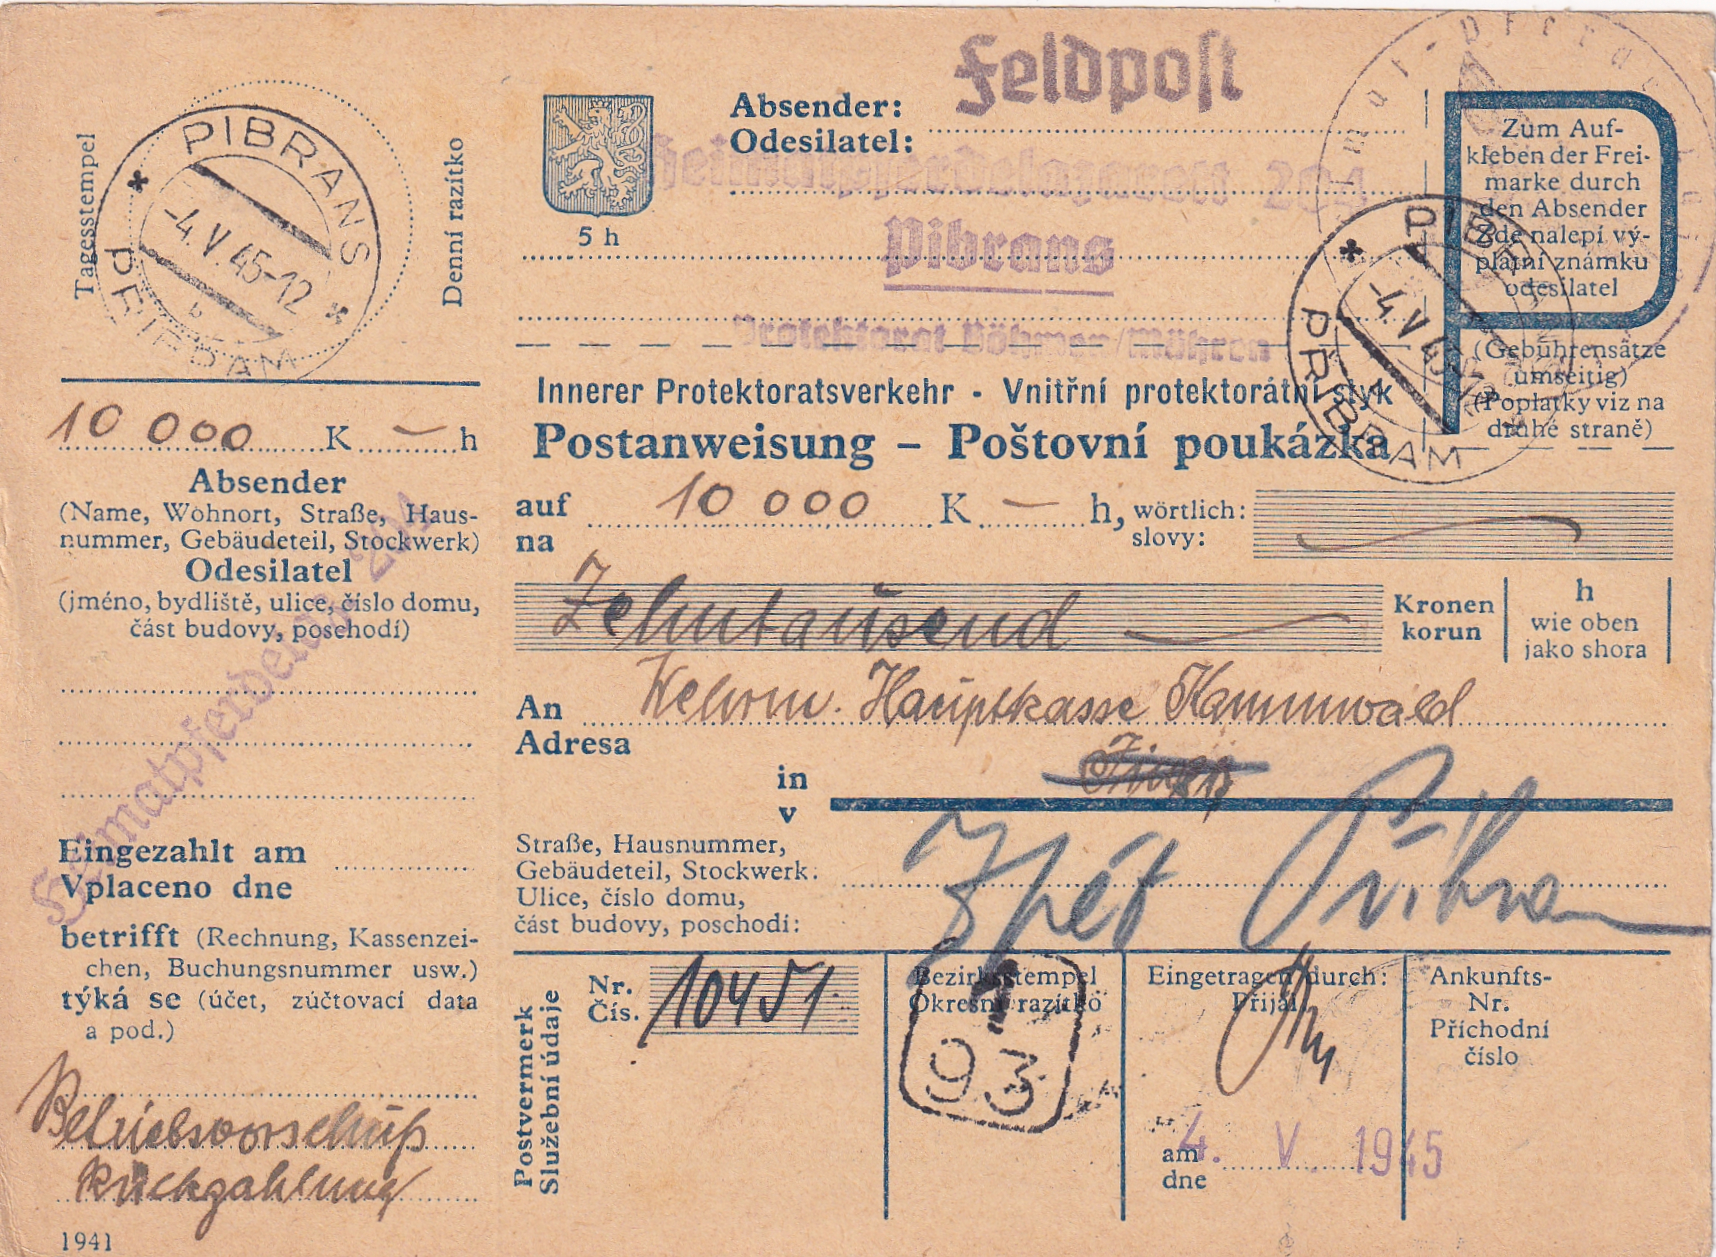 Feldpost
Absender:
Odesilatel:
Heimatpferdelazarett 204
Pibrans
Protektorat Böhmen/Mähren
5 h
Tagesstempel
Denní razítko
PIBRANS
-4.V.45-12
b
PŘIBRAM
Zum Auf-
kleben der Frei-
marke durch
den Absender
Zde nalepí vý-
platní známku
odesilatel
(Gebührensätze
umseitig)
(Poplatky viz na
druhé straně)
PIBRANS
-4.V.45-12
PŘIBRAM
Innerer Protektoratsverkehr - Vnitřní protektorátní styk
Postanweisung – Poštovní poukázka
10 000 K — h
Absender
(Name, Wohnort, Straße, Haus-
nummer, Gebäudeteil, Stockwerk)
Odesilatel
(jméno, bydliště, ulice, číslo domu,
část budovy, poschodí)
Heimatpferdelaz. 204
Eingezahlt am
Vplaceno dne
betrifft (Rechnung, Kassenzei-
chen, Buchungsnummer usw.)
týká se (účet, zúčtovací data
a pod.)
Betriebsvorschuß
Rückzahlung
1941
auf 10 000 K — h, wörtlich:
na slovy:
Zehntausend
Kronen
korun
h
wie oben
jako shora
An Wehrm. Hauptkasse Kammwald
Adresa
in
v
Straße, Hausnummer,
Gebäudeteil, Stockwerk.
Ulice, číslo domu,
část budovy, poschodí:
Zpět Příbram
Postvermerk
Služební údaje
Nr.
Čís.
10451
Bezirksstempel
Okresní razítko
93
Eingetragen durch:
Přijal
am
dne
4. V. 1945
Ankunfts-
Nr.
Příchodní
číslo